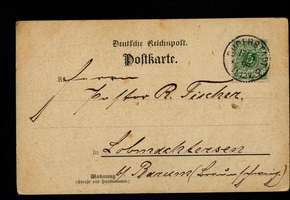 Deutsche Reichspost.
Postkarte.
Herrn
Pastor R. Fischer.
in Lobmachtersen
b/ Barum (Braunschweig)
Wohnung
(Straße und Hausnummer)